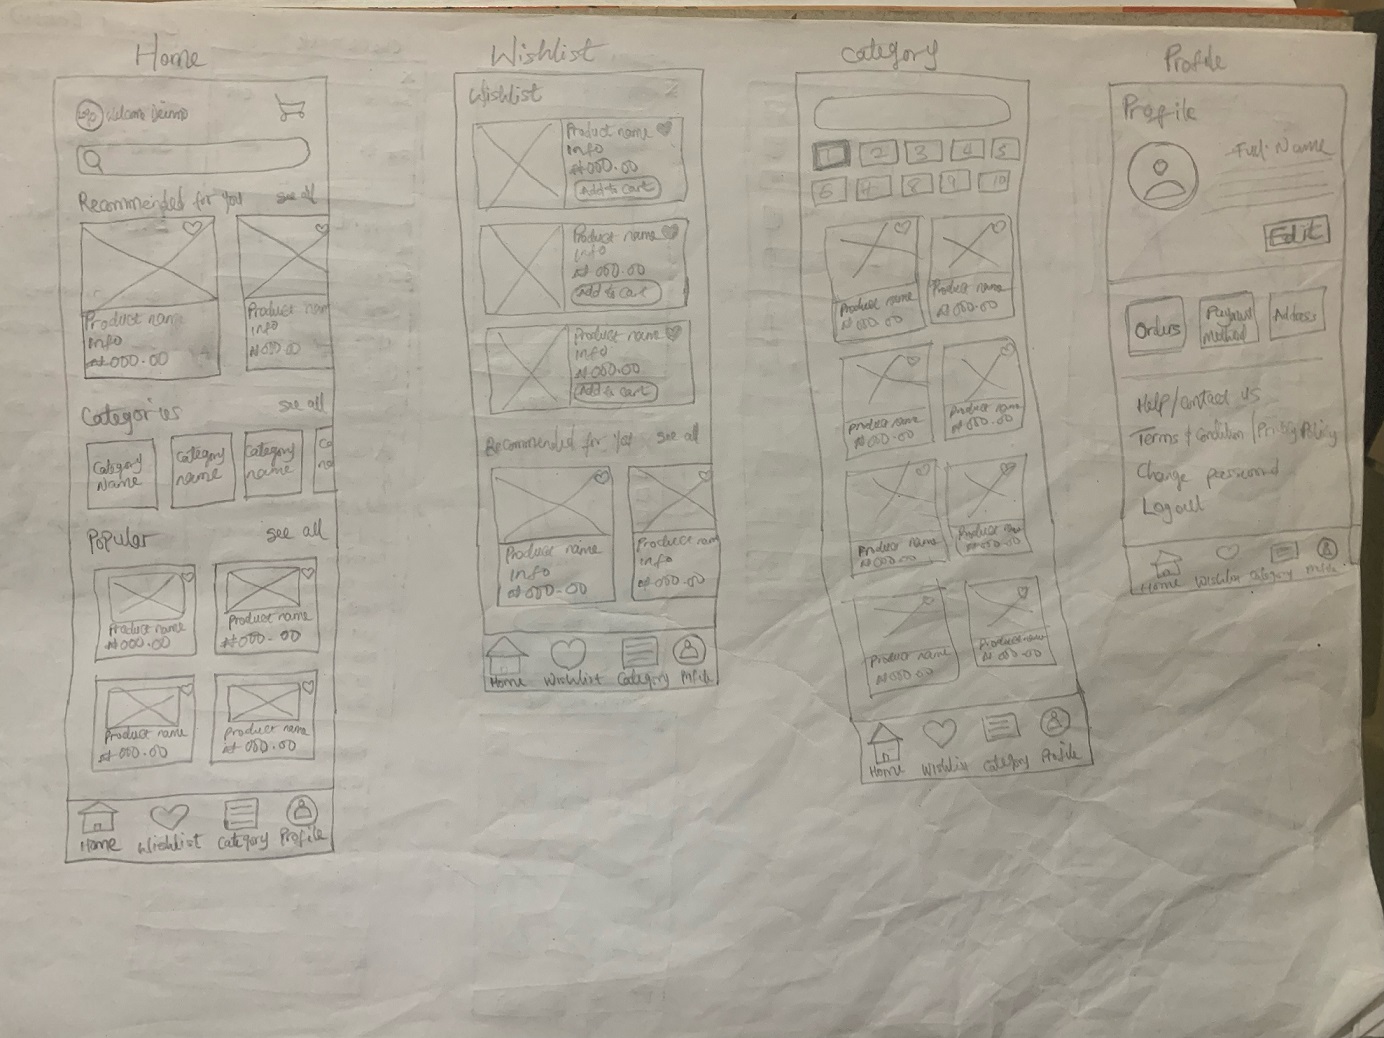 Home
Welcome Deinma
Recommended for You see all
Product name
info
₦000.00
Product nam
info
₦000.00
Categories see all
Category
Name
Category
name
Category
name
Ca
na
Popular see all
Product name
₦000.00
Product name
₦000.00
Product name
₦000.00
Product name
₦000.00
Home Wishlist Category Profile
Wishlist
Wishlist
Product name
info
₦000.00
Add to cart
Product name
info
₦000.00
Add to cart
Product name
info
₦000.00
Add to cart
Recommended for You see all
Product name
info
₦000.00
Product nam
info
₦000.00
Home Wishlist Category Profile
Category
1 2 3 4 5
6 7 8 9 10
Product name
₦000.00
Product name
₦000.00
Product name
₦000.00
Product name
₦000.00
Product name
₦000.00
Product name
₦000.00
Product name
₦000.00
Product name
₦000.00
Home Wishlist Category Profile
Profile
Profile
Full Name
Edit
Orders
Payment
method
Address
Help/contact us
Terms & Condition/Privacy Policy
Change password
Logout
Home Wishlist Category Profile